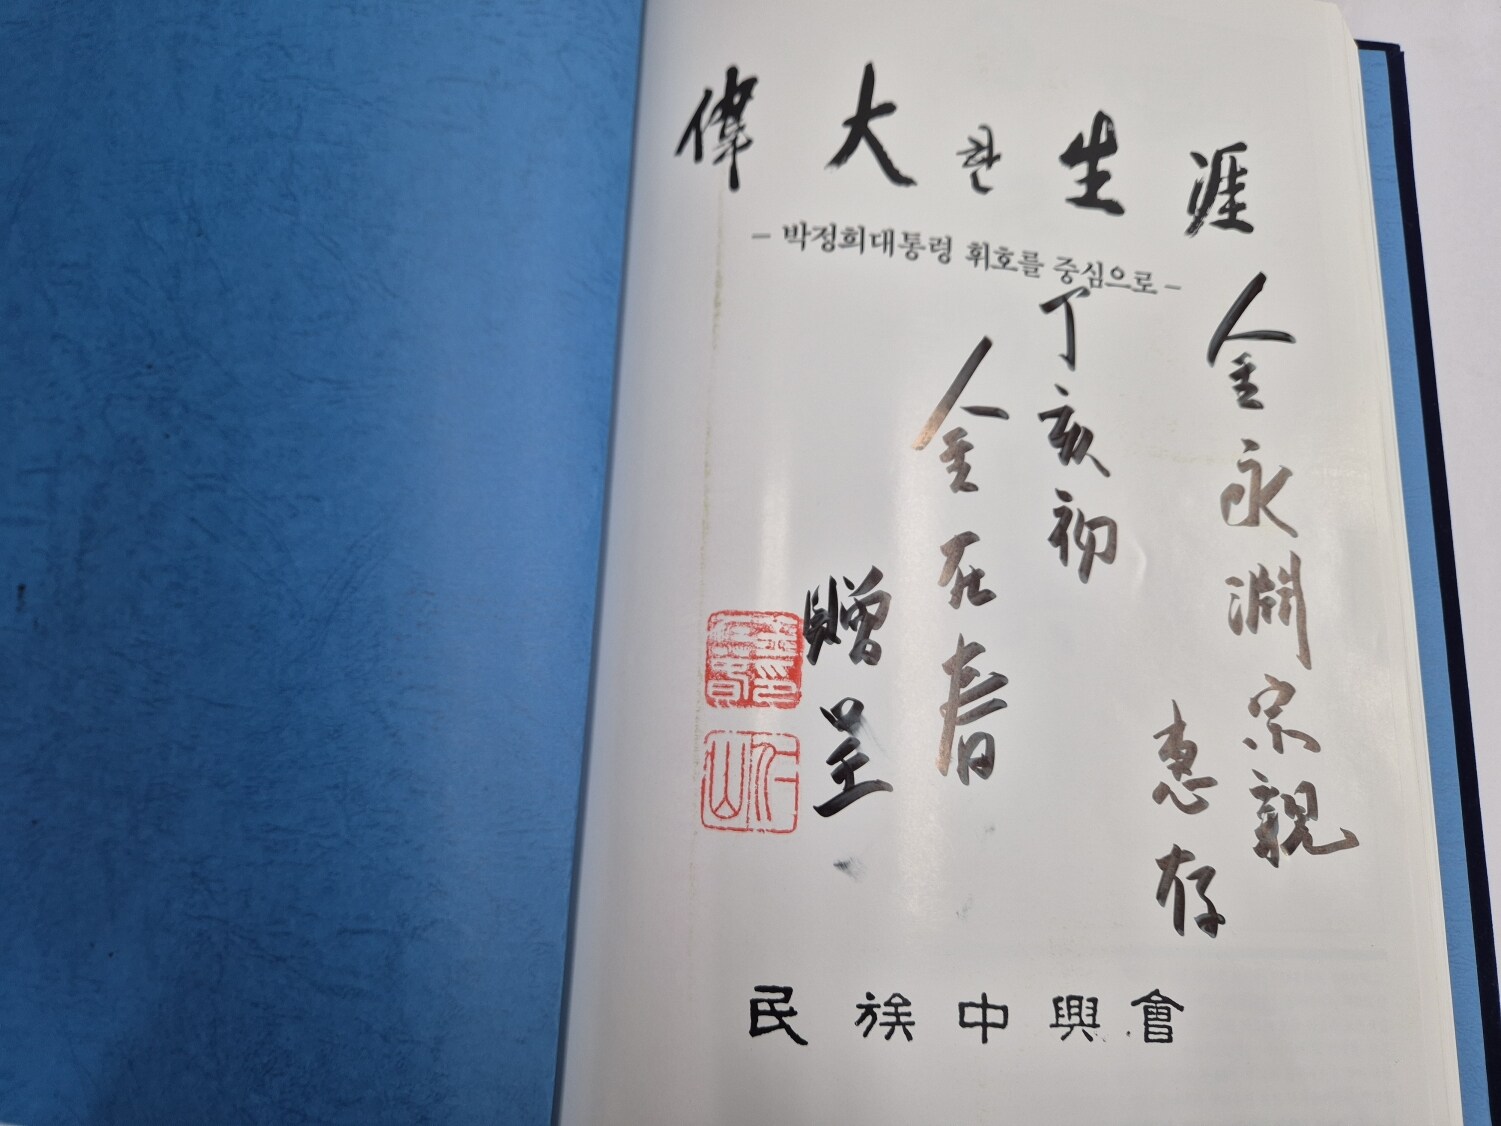 偉大한生涯
- 박정희대통령 휘호를 중심으로 -
金永淵宗親
惠存
丁亥初
金在春
贈呈
民族中興會